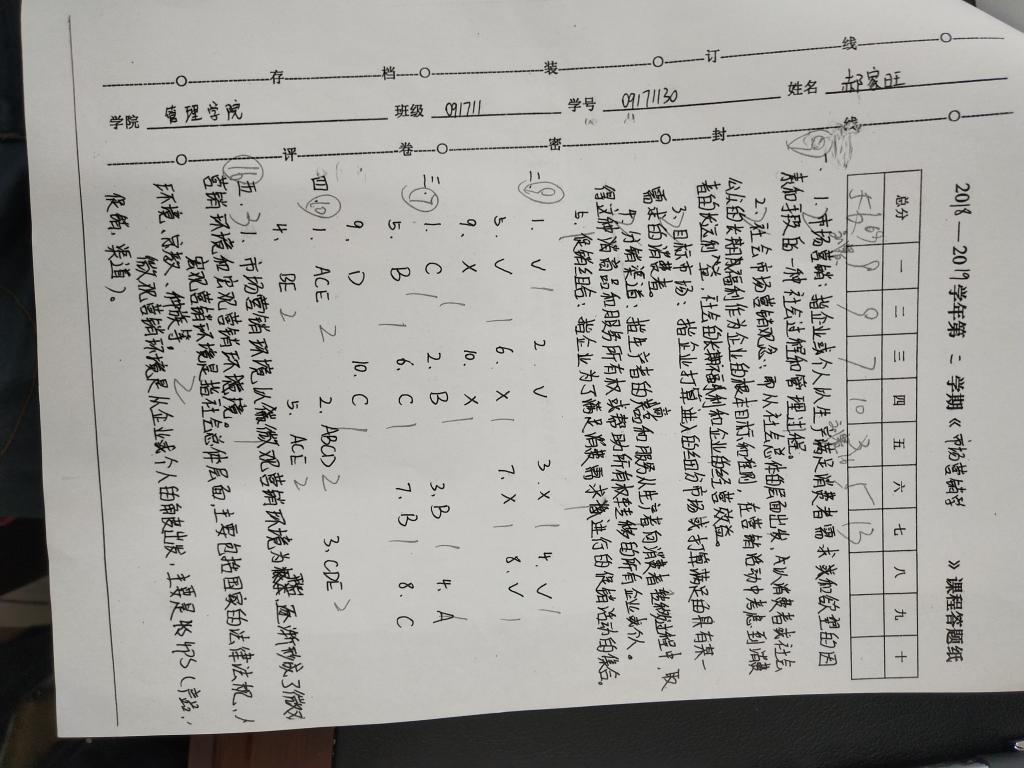 2018—2019学年第二学期《市场营销学》课程答题纸
学院 管理学院 班级 091711 学号 09171130 姓名 郝家旺
存档装订线
评卷密封线
总分 一 二 三 四 五 六 七 八 九 十
67 9 9 7 10 13
1、市场营销：指企业或个人从生产满足消费者需求或欲望的因
素和手段的一种社会过程和管理过程。
2、社会市场营销观念：即从社会总体的层面出发，以消费者或社会
公众的长期福利作为企业的根本目标和准则，在营销活动中考虑到消费
者的长远利益，社会的长期福利和企业的经营效益。
3、目标市场：指企业打算进入的细分市场或打算满足的具有某一
需求的消费者。
4、分销渠道：指生产者的商品和服务从生产者向消费者转移过程中，取
得这种消商品和服务所有权或帮助所有权转移的所有企业或个人。
5、促销组合：指企业为了满足消费需求推进行的促销活动的集合。
二. 9
1. V 2. V 3. X 4. V
5. V 6. X 7. X 8. V
9. X 10. X
三. 7
1. C 2. B 3. B 4. A
5. B 6. C 7. B 8. C
9. D 10. C
四. 10
1. ACE 2 2. ABCD 2 3. CDE 2
4. BE 2 5. ACE 2
16
五. 3 1. 市场营销环境从微观营销环境为逐渐形成了微观
营销环境和宏观营销环境。
宏观营销环境是指社会总体层面，主要包括国家的法律法规、人
环境、宗教、种族等。 2
微观营销环境是从企业或个人的角度出发，主要是指4PS（产品、
促销、渠道）。